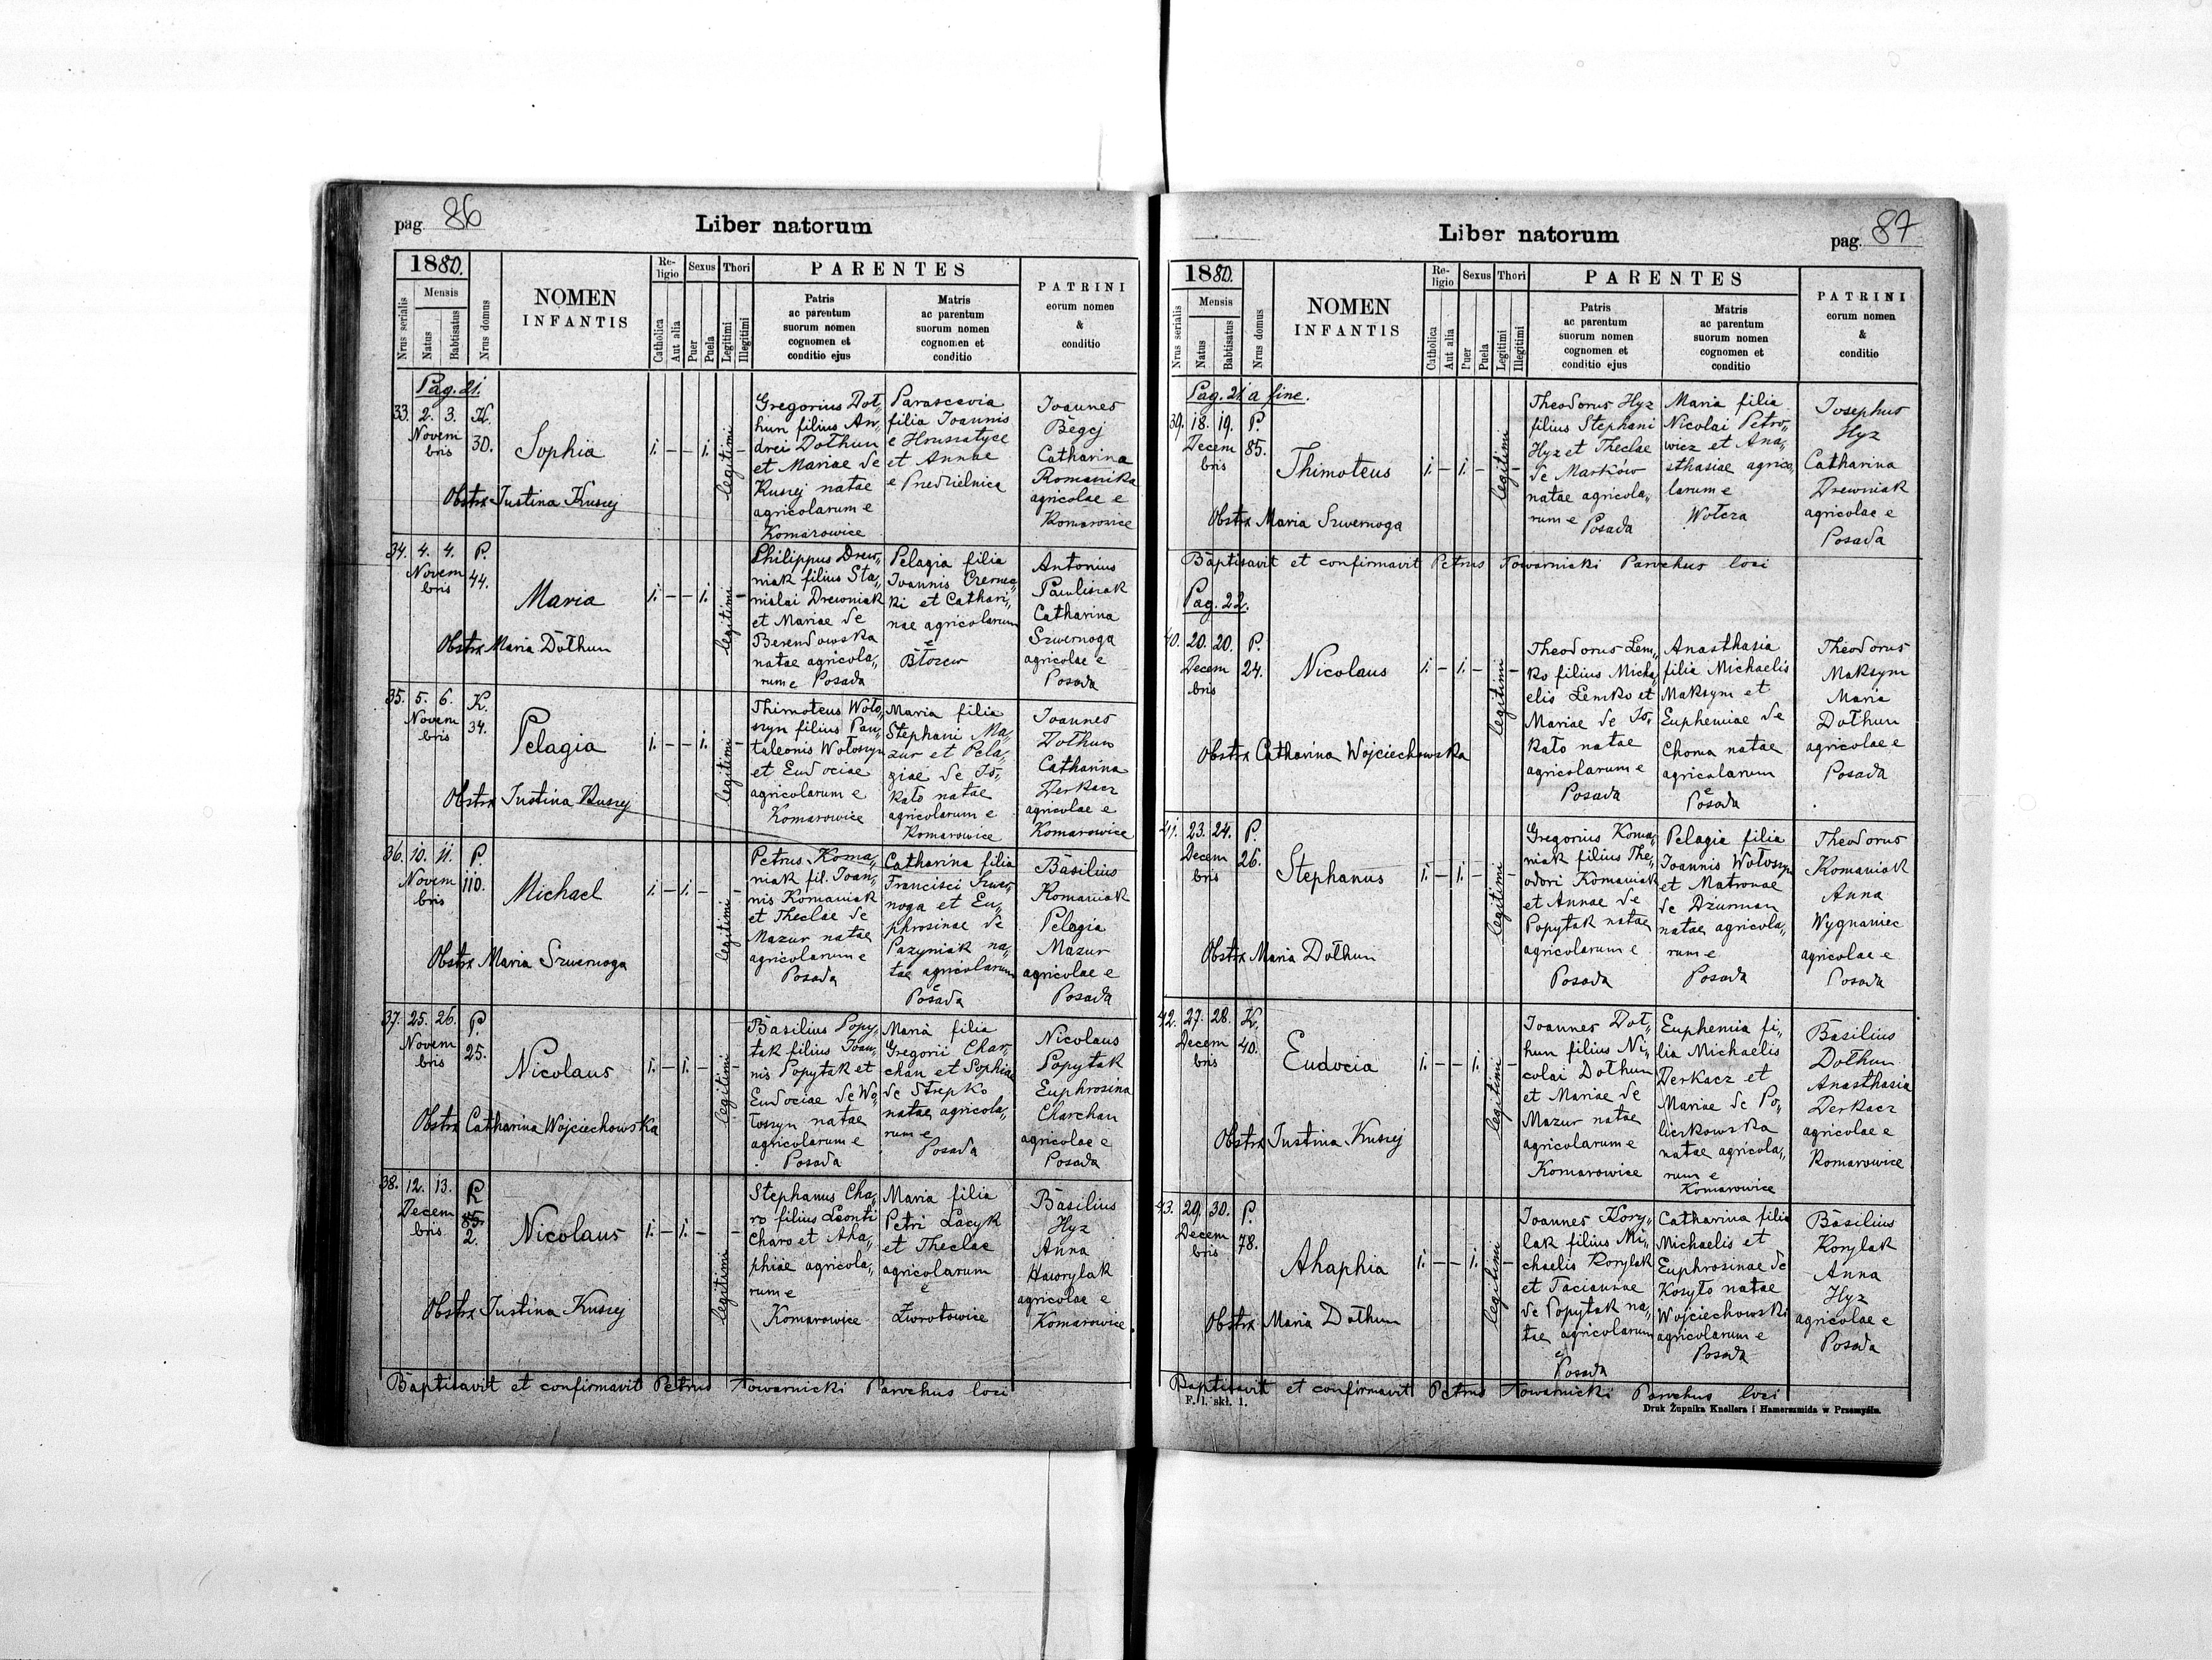 pag. 86
Liber natorum
1880.
Nrus serialis
Mensis
Natus
Babtisatus
Nrus domus
NOMEN
INFANTIS
Re-
ligio
Catholica
Aut alia
Sexus
Puer
Puela
Thori
Legitimi
Illegitimi
PARENTES
Patris
ac parentum
suorum nomen
cognomen et
conditio ejus
Matris
ac parentum
suorum nomen
cognomen et
conditio
PATRINI
eorum nomen
&
conditio
Pag. 21.
33. 2. 3. K.
Novem
bris
30.
Sophia
1. – – 1. legitimi –
Obstrx Justina Kuszej
Gregorius Doł„
hun filius An„
drei Dołhun
et Mariae de
Kuszej natae
agricolarum e
Komarowice
Parascevia
filia Joannis
e Hruszatyce
et Annae
e Predzielnica
Joannes
Bęgej
Catharina
Romanika
agricolae e
Komarowice
34. 4. 4. P.
Novem
bris
44.
Maria
1. – – 1. legitimi –
Obstrx Maria Dołhun
Philippus Drew„
niak filius Sta„
nislai Drewniak
et Mariae de
Berendowska
natae agricola„
rum e Posada
Pelagia filia
Joannis Czernec„
ki et Cathari„
nae agricolarum
e
Błozew
Antonius
Pawlisiak
Catharina
Szwernoga
agricolae e
Posada
35. 5. 6. K.
Novem
bris
34.
Pelagia
1. – – 1. legitimi –
Obstrx Justina Kuszej
Thimoteus Woło„
szyn filius Pan„
taleonis Wołoszyn
et Eudociae
agricolarum e
Komarowice
Maria filia
Stephani Ma„
zur et Pela„
giae de So„
kało natae
agricolarum e
Komarowice
Joannes
Dołhun
Catharina
Derkacz
agricolae e
Komarowice
36. 10. 11. P.
Novem
bris
110.
Michael
1. – 1. – legitimi –
Obstrx Maria Szwernoga
Petrus Koma„
niak fil. Joan„
nis Komaniak
et Theclae de
Mazur natae
agricolarum e
Posada
Catharina filia
Francisci Szwer„
noga et Eu„
phrosinae de
Pazyniak na„
tae agricolarum
e
Posada
Basilius
Komaniak
Pelagia
Mazur
agricolae e
Posada
37. 25. 26. P.
Novem
bris
25.
Nicolaus
1. – 1. – legitimi –
Obstrx Catharina Wojciechowska
Basilius Popy„
tak filius Joan„
nis Popytak et
Eudociae de Wo„
łoszyn natae
agricolarum e
Posada
Maria filia
Gregorii Char„
chan et Sophiae
de Strepko
natae agricola„
rum e
Posada
Nicolaus
Popytak
Euphrosina
Charchan
agricolae e
Posada
38. 12. 13.
Decem
bris
85.
2.
Nicolaus
1. – 1. – legitimi –
Obstrx Justina Kuszej
Stephanus Cha„
ro filius Leonti
Charo et Aha„
phiae agricola„
rum e
Komarowice
Maria filia
Petri Lacyk
et Theclae
agricolarum
e
Zwrotowice
Basilius
Hyz
Anna
Haworylak
agricolae e
Komarowice
Baptisavit et confirmavit Petrus Towarnicki Parochus loci
Liber natorum
pag. 87
1880.
Nrus serialis
Mensis
Natus
Babtisatus
Nrus domus
NOMEN
INFANTIS
Re-
ligio
Catholica
Aut alia
Sexus
Puer
Puela
Thori
Legitimi
Illegitimi
PARENTES
Patris
ac parentum
suorum nomen
cognomen et
conditio ejus
Matris
ac parentum
suorum nomen
cognomen et
conditio
PATRINI
eorum nomen
&
conditio
Pag. 21. a fine.
39. 18. 19. P.
Decem
bris
85.
Thimoteus
1. – 1. – legitimi –
Obstrx Maria Szwernoga
Theodorus Hyz
filius Stephani
Hyz et Theclae
de Marków
natae agricola„
rum e Posada
Maria filia
Nicolai Petro„
wicz et Ana„
sthasiae agrico„
larum e
Wołcza
Josephus
Hyz
Catharina
Drewniak
agricolae e
Posada
Baptisavit et confirmavit Petrus Towarnicki Parochus loci
Pag. 22.
40. 20. 20. P.
Decem
bris
24.
Nicolaus
1. – 1. – legitimi –
Obstrx Catharina Wojciechowska
Theodorus Lem„
ko filius Micha„
elis Lemko et
Mariae de So„
kało natae
agricolarum e
Posada
Anasthasia
filia Michaelis
Maksym et
Euphemiae de
Choma natae
agricolarum
e
Posada
Theodorus
Maksym
Maria
Dołhun
agricolae e
Posada
41. 23. 24. P.
Decem
bris
26.
Stephanus
1. – 1. – legitimi –
Obstrx Maria Dołhun
Gregorius Koma„
niak filius The„
odori Komaniak
et Annae de
Popytak natae
agricolarum e
Posada
Pelagia filia
Joannis Wołoszyn
et Matronae
de Dziurman
natae agricola„
rum e
Posada
Theodorus
Komaniak
Anna
Wygnaniec
agricolae e
Posada
42. 27. 28. K.
Decem
bris
40.
Eudocia
1. – – 1. legitimi –
Obstrx Justina Kuszej
Joannes Doł„
hun filius Ni„
colai Dołhun
et Mariae de
Mazur natae
agricolarum e
Komarowice
Euphemia fi„
lia Michaelis
Derkacz et
Mariae de Po„
liczkowska
natae agricola„
rum e
Komarowice
Basilius
Dołhun
Anasthasia
Derkacz
agricolae e
Komarowice
43. 29. 30. P.
Decem
bris
78.
Ahaphia
1. – – 1. legitimi –
Obstrx Maria Dołhun
Joannes Kory„
lak filius Mi„
chaelis Korylak
et Taciannae
de Popytak na„
tae agricolarum
e
Posada
Catharina filia
Michaelis et
Euphrosinae de
Kosyło natae
Wojciechowski
agricolarum e
Posada
Basilius
Korylak
Anna
Hyz
agricolae e
Posada
Baptisavit et confirmavit Petrus Towarnicki Parochus loci
F. 1. skł. 1.
Druk Żupnika Knellera i Hamerszmida w Przemyślu.